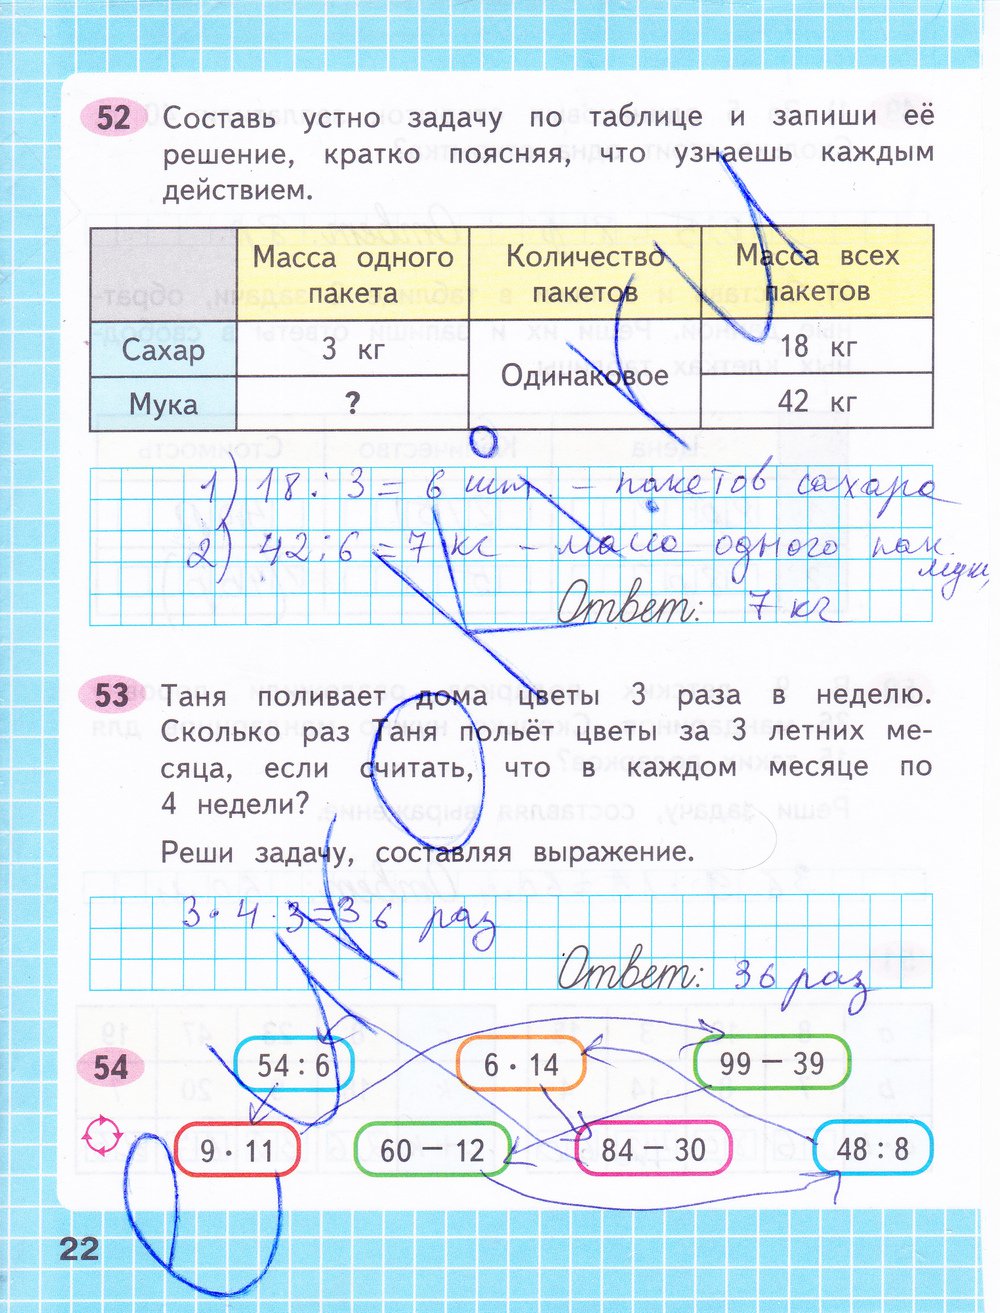 52 Составь устно задачу по таблице и запиши её
решение, кратко поясняя, что узнаешь каждым
действием.
Масса одного пакета Количество пакетов Масса всех пакетов
Сахар 3 кг Одинаковое 18 кг
Мука ? 42 кг
1) 18 : 3 = 6 шт. – пакетов сахара
2) 42 : 6 = 7 кг – масса одного пак.
муки
Ответ: 7 кг
53 Таня поливает дома цветы 3 раза в неделю.
Сколько раз Таня польёт цветы за 3 летних ме-
сяца, если считать, что в каждом месяце по
4 недели?
Реши задачу, составляя выражение.
3 · 4 · 3 = 36 раз
Ответ: 36 раз
54 54 : 6 6 · 14 99 – 39
9 · 11 60 – 12 84 – 30 48 : 8
22